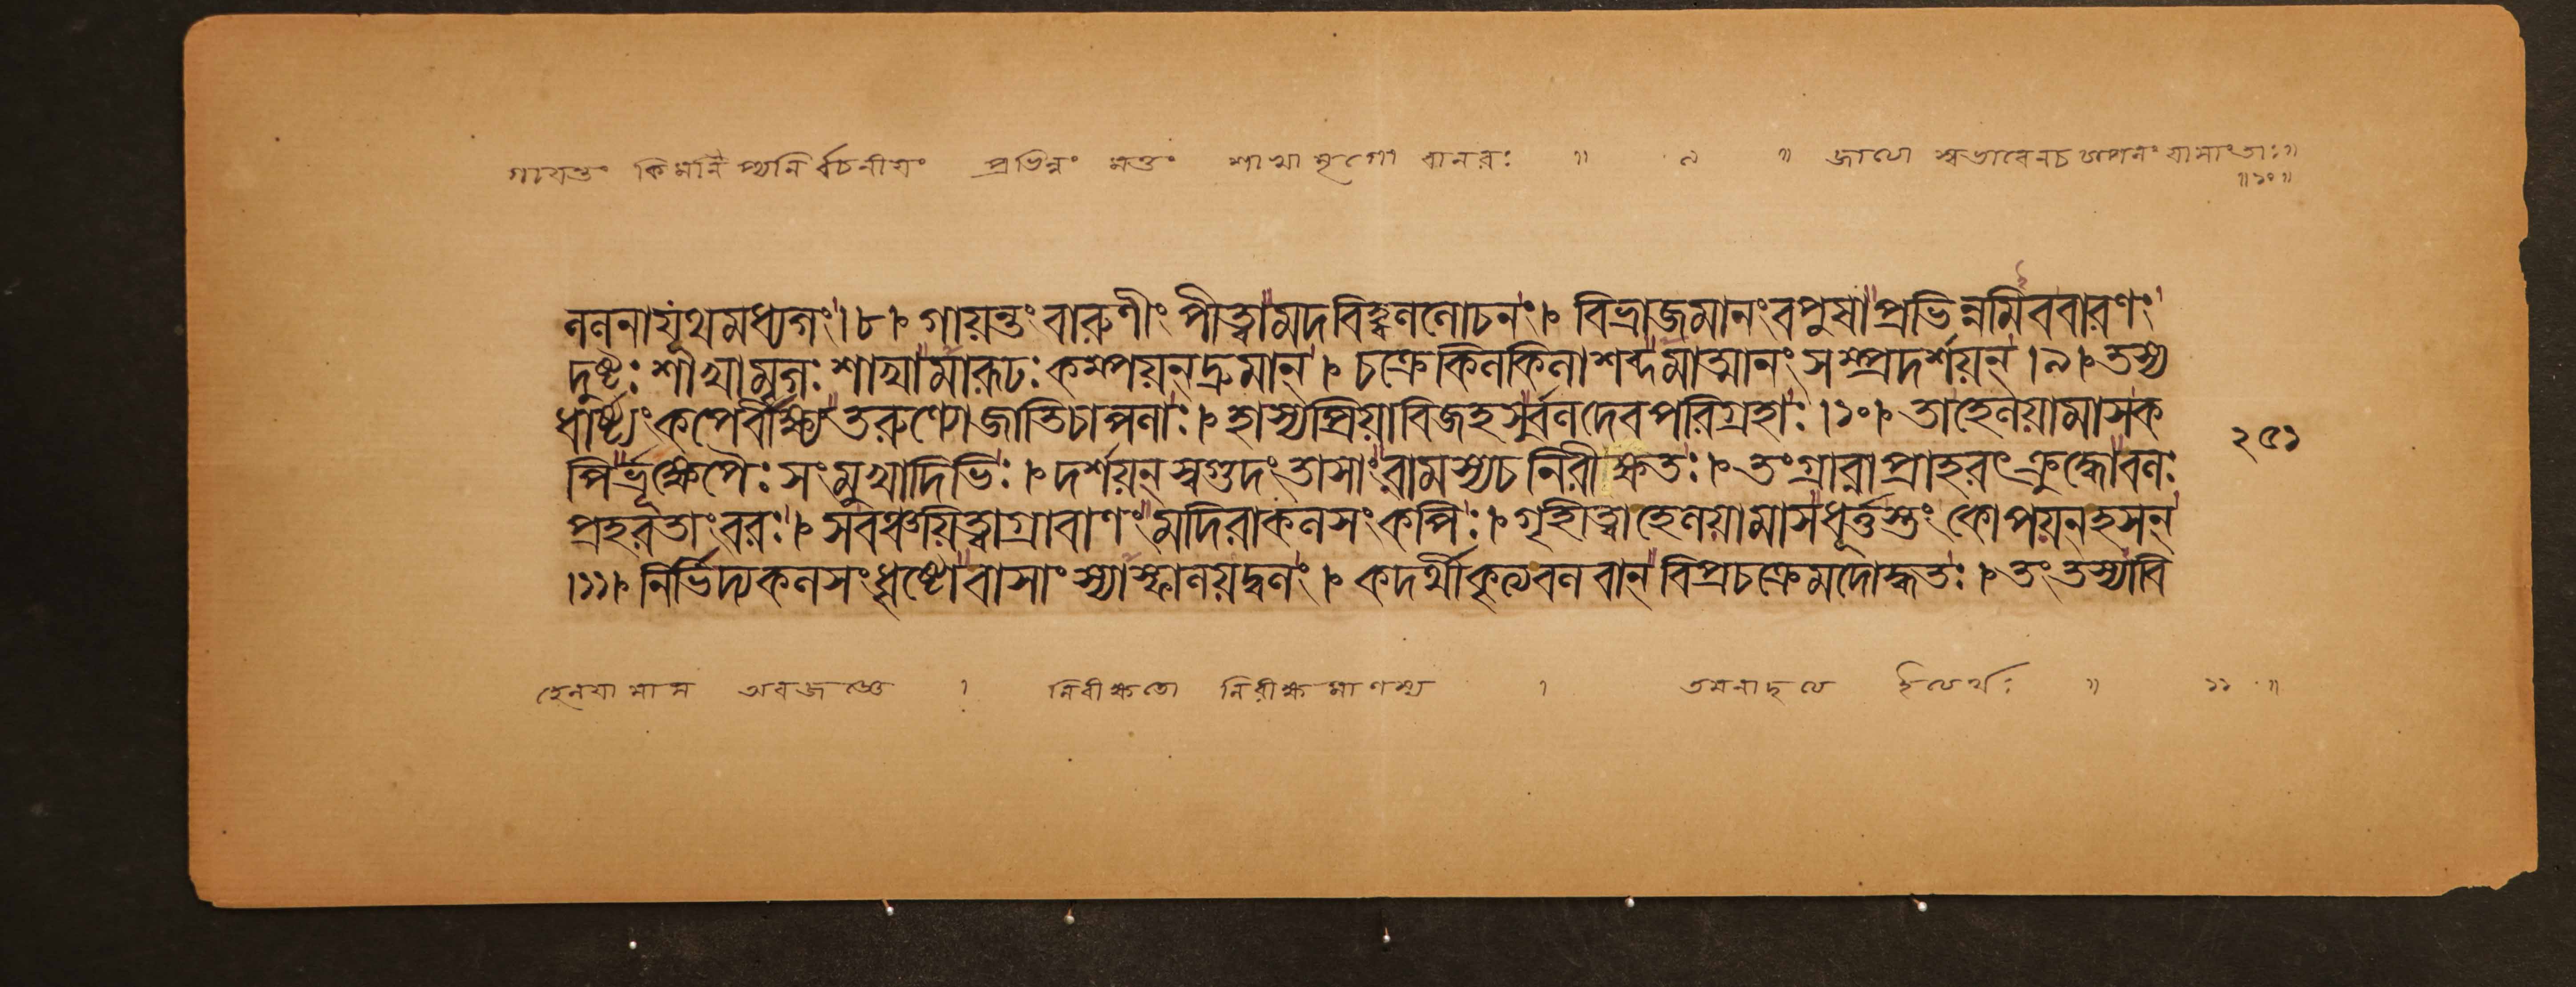 গায়ন্তং কিমনিপ্যনির্বচনীয়ং প্রভিন্নং মত্তং শাখামৃগো বানরঃ ॥ ৯ ॥ জাত্যা স্বভাবেনচ চাপলং যাসাংতাঃ॥
॥১০॥
ললনাযূথমধ্যগং।৮। গায়ন্তংবারুণীংপীত্বামদবিহ্বললোচনং। বিভ্রাজমানংবপুষাপ্রভিন্নমিববারণং
দুষ্টঃশাখামৃগঃশাখামারূঢঃকম্পয়ন্দ্রুমান্। চক্রেকিলকিলাশব্দমাত্মানংসম্প্রদর্শয়ন্।৯। তস্য
ধার্ষ্ট্যংকপের্বীক্ষ্যতরুণ্যোজাতিচাপলাঃ। হাস্যপ্রিয়াবিজহসুর্বলদেবপরিগ্রহাঃ।১০। তাহেলয়ামাসক
পির্ভ্রূক্ষেপৈঃসংমুখাদিভিঃ। দর্শয়ন্স্বগুদংতাসাংরামস্যচনিরীক্ষতঃ। তংগ্রাব্ণাপ্রাহরৎক্রুদ্ধোবলঃ
প্রহরতাংবরঃ। সবঞ্চয়িত্বাগ্রাবাণংমদিরাকলসংকপিঃ। গৃহীত্বাহেলয়ামাসধূর্ত্তস্তংকোপয়ন্হসন্
।১১। নির্ভিদ্যকলসংধৃষ্টোবাসাংস্যাস্ফালয়দ্বলং। কদর্থীকৃত্যবলবান্বিপ্রচক্রেমদোদ্ধতঃ। তংতস্যাবি
২৫১
হেলয়ামাস অবজজ্ঞে । নিরীক্ষতো নিরীক্ষমাণস্য । তমনাদৃত্য ইত্যর্থঃ ॥ ১১ ॥